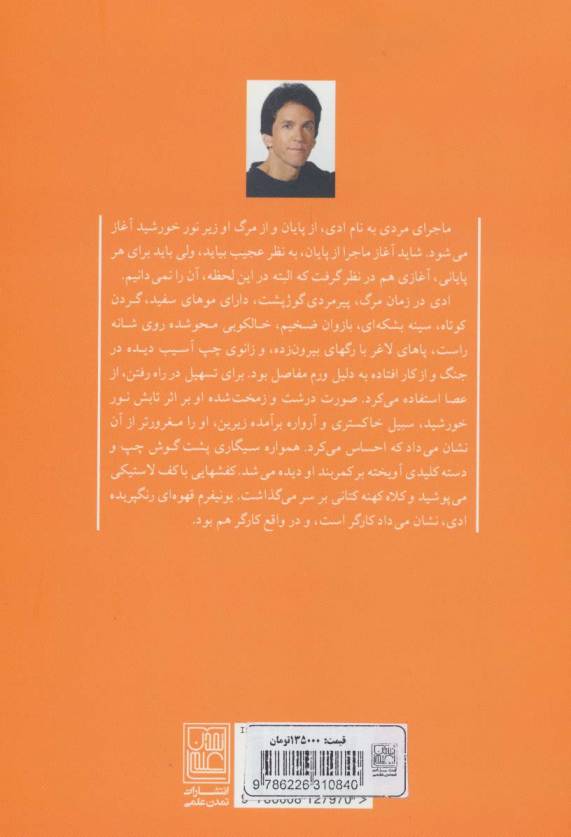 ماجرای مردی به نام ادی، از پایان و از مرگ او زیر نور خورشید آغاز
می‌شود. شاید آغاز ماجرا از پایان، به نظر عجیب بیاید، ولی باید برای هر
پایانی، آغازی هم در نظر گرفت که البته در این لحظه، آن را نمی‌دانیم.
ادی در زمان مرگ، پیرمردی گوژپشت، دارای موهای سفید، گردن
کوتاه، سینه بشکه‌ای، بازوان ضخیم، خالکوبی محوشده روی شانه
راست، پاهای لاغر با رگهای بیرون‌زده، و زانوی چپ آسیب دیده در
جنگ و از کار افتاده به دلیل ورم مفاصل بود. برای تسهیل در راه رفتن، از
عصا استفاده می‌کرد. صورت درشت و زمخت‌شده او بر اثر تابش نور
خورشید، سبیل خاکستری و آرواره برآمده زیرین، او را مغرورتر از آن
نشان می‌داد که احساس می‌کرد. همواره سیگاری پشت گوش چپ و
دسته کلیدی آویخته بر کمربند او دیده می‌شد. کفشهایی با کف لاستیکی
می‌پوشید و کلاه کهنه کتانی بر سر می‌گذاشت. یونیفرم قهوه‌ای رنگپریده
ادی، نشان می‌داد کارگر است، و در واقع کارگر هم بود.
تمدن علمی
انتشارات
تمدن علمی
قیمت: ۱۳۵۰۰۰تومان
9 786226 310840